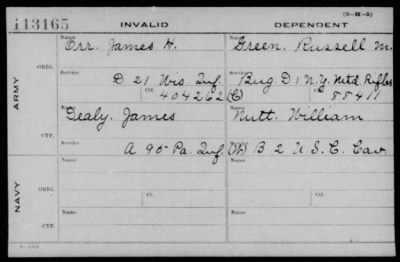 (3-M-5)
i43165 INVALID DEPENDENT
Name Name
Orr. James H. Green. Russell M.
ORIG.
Service Service
D 21 Wis Inf. Bug. D 1 N.Y. Mtd. Rifles
Ctf. 404262 (C) 55411
ARMY
Name Name
Gealy. James Nutt. William
CTF.
Service
A 90 Pa. Inf. (W) B 2 U.S.C. Cav.
Name Name
ORIG.
NAVY
Service Ctf. Service Ctf.
Name Name
CTF.
Service Service